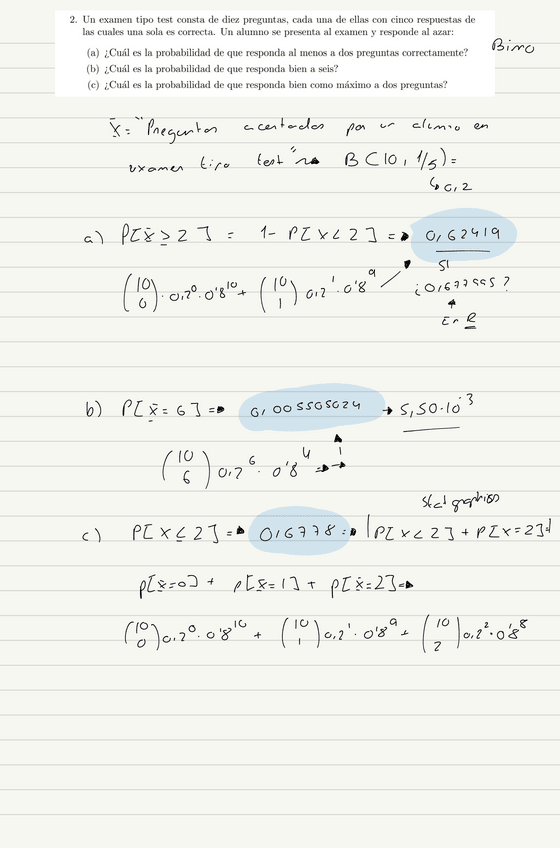 2. Un examen tipo test consta de diez preguntas, cada una de ellas con cinco respuestas de
las cuales una sola es correcta. Un alumno se presenta al examen y responde al azar:
Bino
(a) ¿Cuál es la probabilidad de que responda al menos a dos preguntas correctamente?
(b) ¿Cuál es la probabilidad de que responda bien a seis?
(c) ¿Cuál es la probabilidad de que responda bien como máximo a dos preguntas?
X = "Preguntas acertadas por un alumno en
examen tipo test" ~ B(10, 1/5) =
↳ 0,2
a) P[X ≥ 2] = 1 - P[X < 2] => 0,62419
(10 0) · 0,2^0 · 0'8^10 + (10 1) 0,2^1 · 0'8^9
SI
¿0,677995?
En R
b) P[X = 6] => 0,005505024 → 5,50·10^-3
(10 6) 0,2^6 · 0'8^4 =>
Statgraphics
c) P[X ≤ 2] => 0,6778 => |P[X < 2] + P[X = 2]=|
P[X=0] + P[X=1] + P[X=2] =>
(10 0) 0,2^0 · 0'8^10 + (10 1) 0,2^1 · 0'8^9 + (10 2) 0,2^2 · 0'8^8